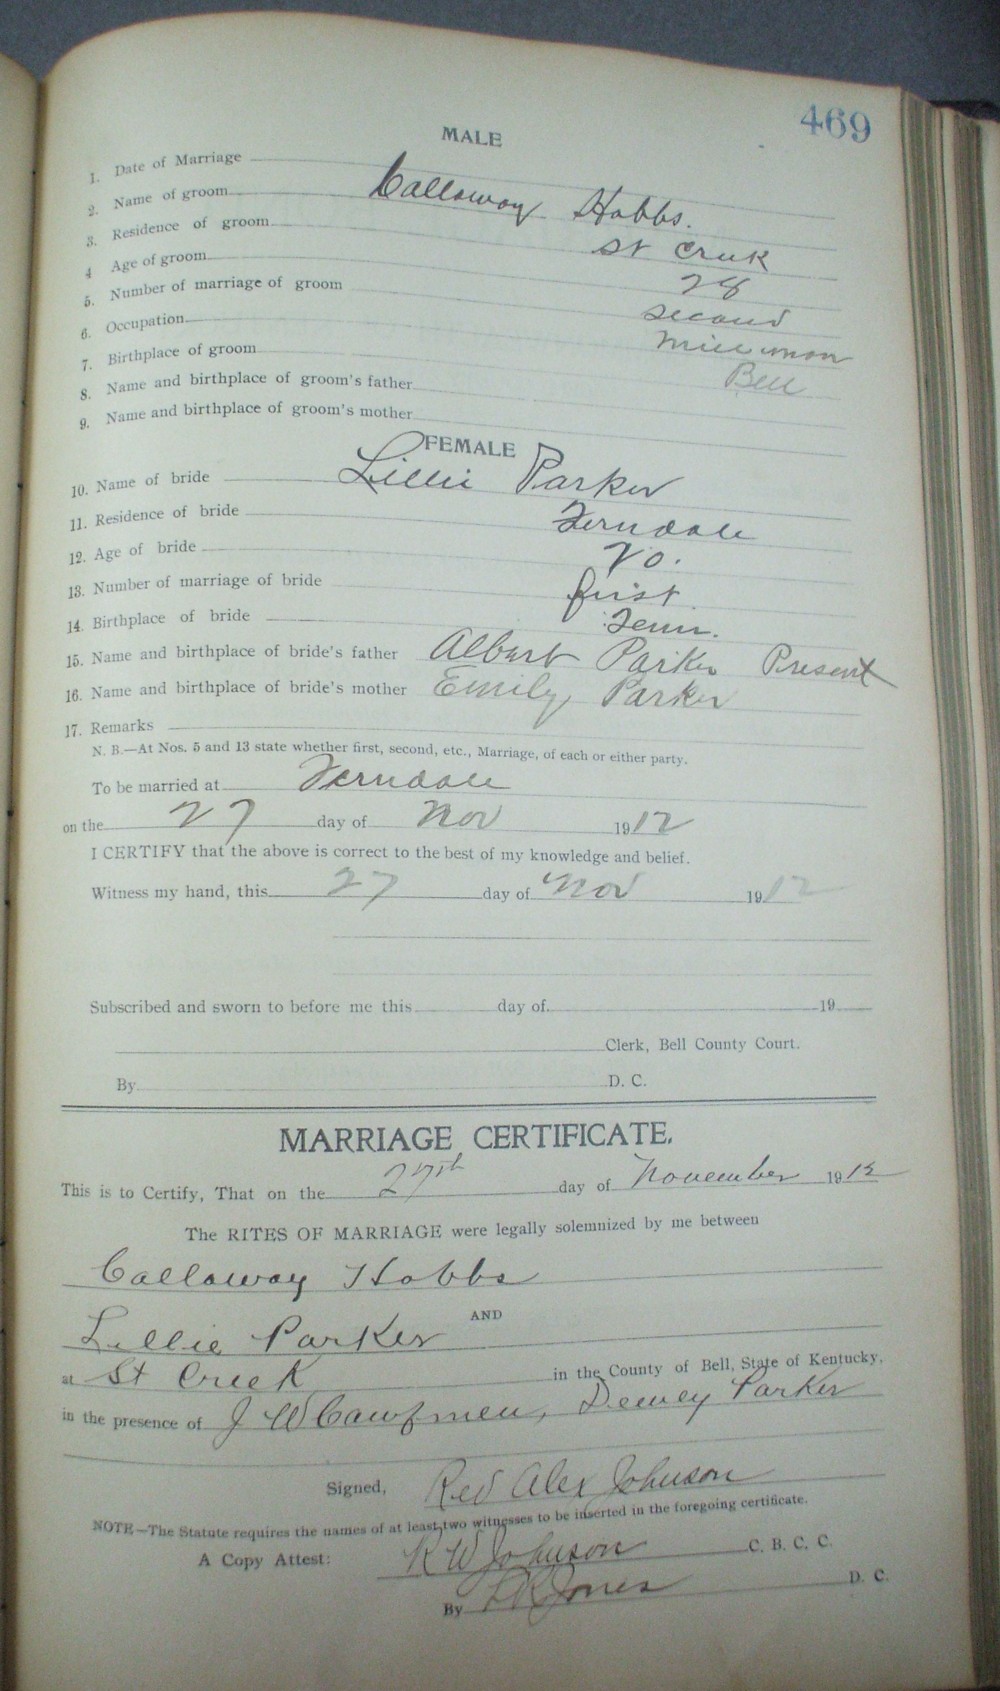 469
MALE
1. Date of Marriage
2. Name of groom Callaway Hobbs.
3. Residence of groom St Creek
4 Age of groom 28
5. Number of marriage of groom second
6. Occupation mill man
7. Birthplace of groom Bell
8. Name and birthplace of groom's father
9. Name and birthplace of groom's mother
FEMALE
10. Name of bride Lillie Parker
11. Residence of bride Ferndale
12. Age of bride 20.
13. Number of marriage of bride first
14. Birthplace of bride Tenn.
15. Name and birthplace of bride's father Albert Parker Present
16. Name and birthplace of bride's mother Emily Parker
17. Remarks
N. B.—At Nos. 5 and 13 state whether first, second, etc., Marriage, of each or either party.
To be married at Ferndale
on the 27 day of Nov 1912
I CERTIFY that the above is correct to the best of my knowledge and belief.
Witness my hand, this 27 day of Nov 1912
Subscribed and sworn to before me this day of 19
Clerk, Bell County Court.
By D. C.
MARRIAGE CERTIFICATE.
This is to Certify, That on the 27th day of November 1912
The RITES OF MARRIAGE were legally solemnized by me between
Callaway Hobbs
AND
Lillie Parker
at St Creek in the County of Bell, State of Kentucky,
in the presence of J W , Dewey Parker
Signed, Rev Alex Johnson
NOTE—The Statute requires the names of at least two witnesses to be inserted in the foregoing certificate.
A Copy Attest: R W Johnson C. B. C. C.
By Jones D. C.